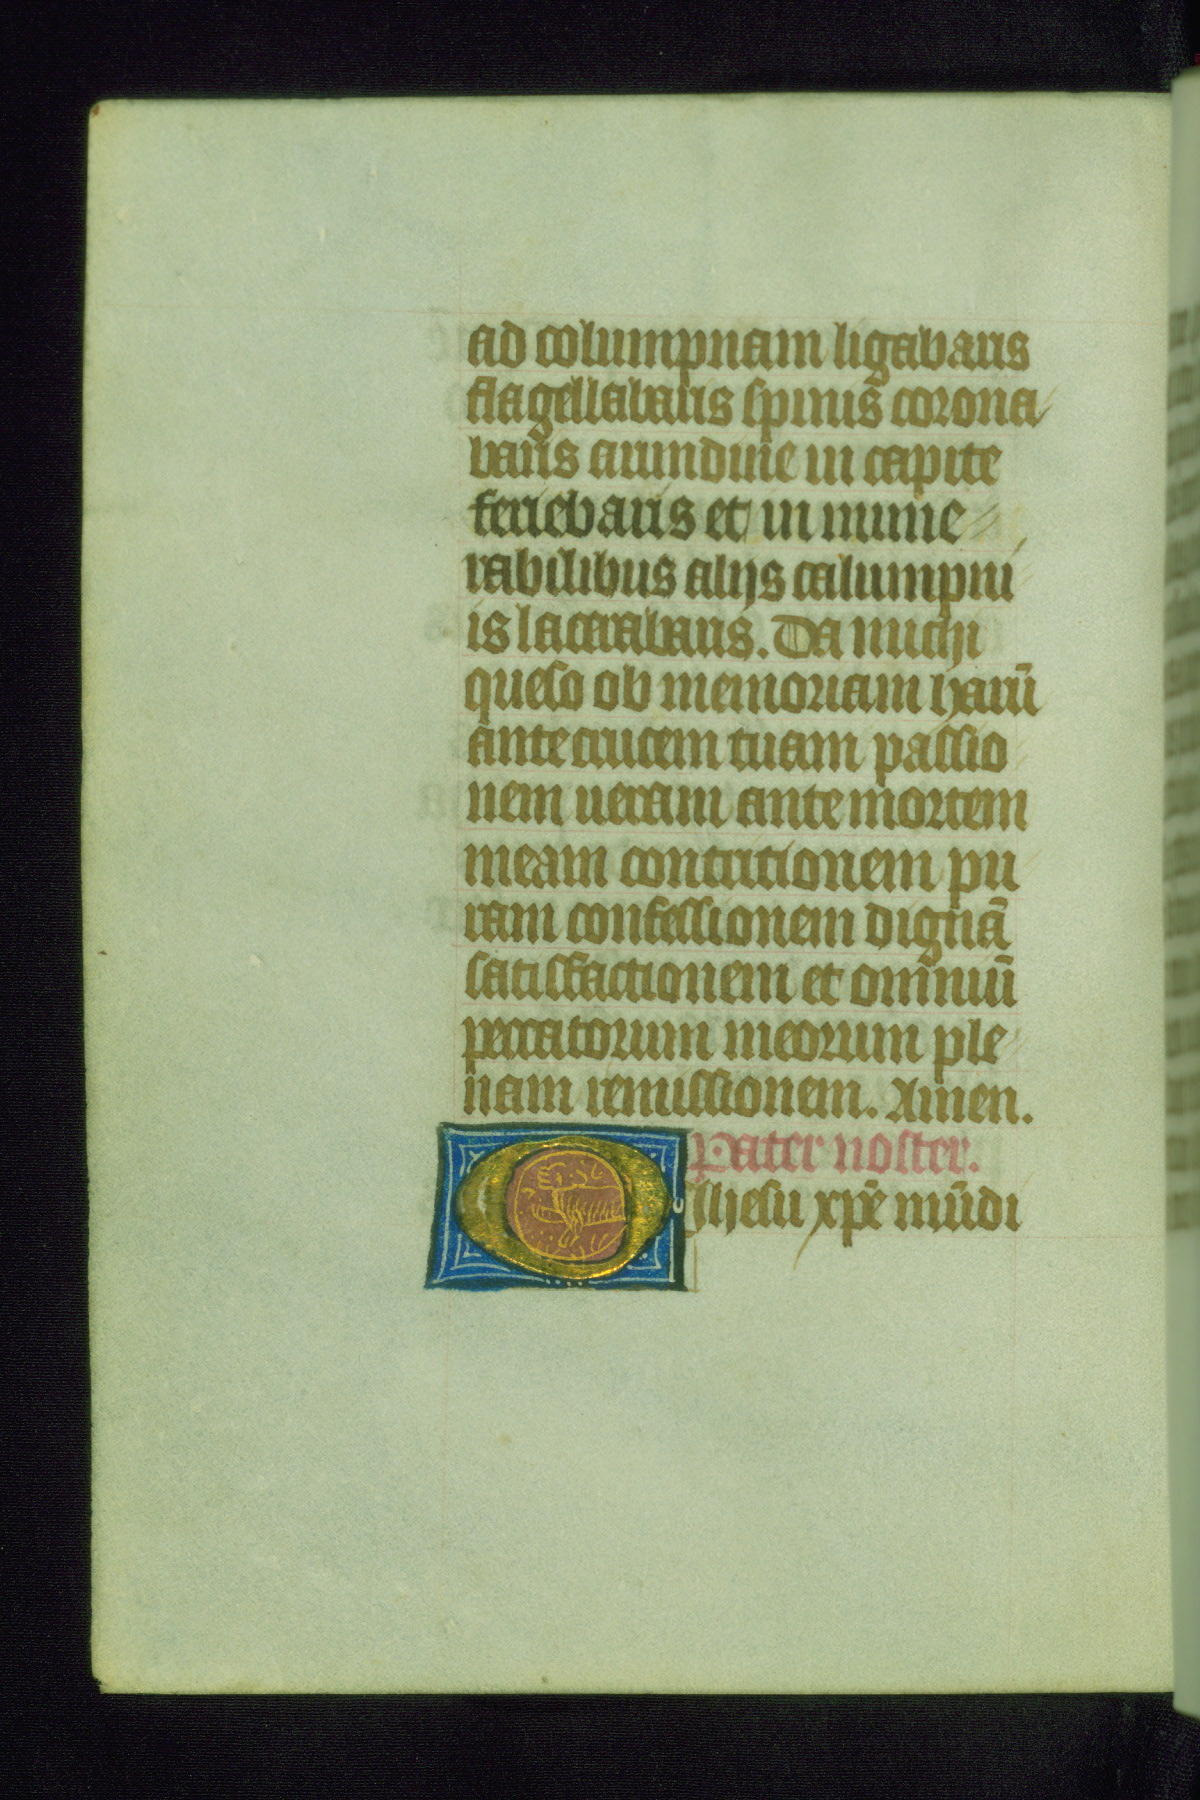 ad columpnam ligabaris
flagellabaris spinis corona
baris arundine in capite
feriebaris et in nume
rabilibus alijs calumpni
is lacerabaris. Da michi
queso ob memoriam harū
ante crucem tuam passio
nem veram ante mortem
meam contritionem pu
ram confessionem dignā
satisfactionem et omniū
peccatorum meorum ple
nam remissionem. Amen.
Pater noster.
O Jhesu xp̄e mūdi